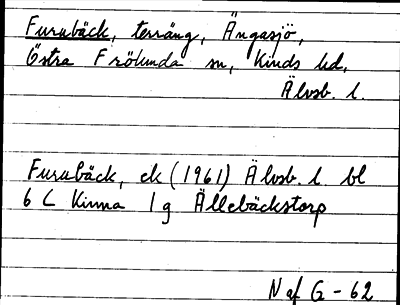 Furubäck, terräng, Ängasjö,
Östra Frölunda sn, Kinds hd,
Älvsb. l.
Furubäck, ek (1961) Älvsb. l. bl
6 C Kinna 1 g Ällebäckstorp
N af G - 62